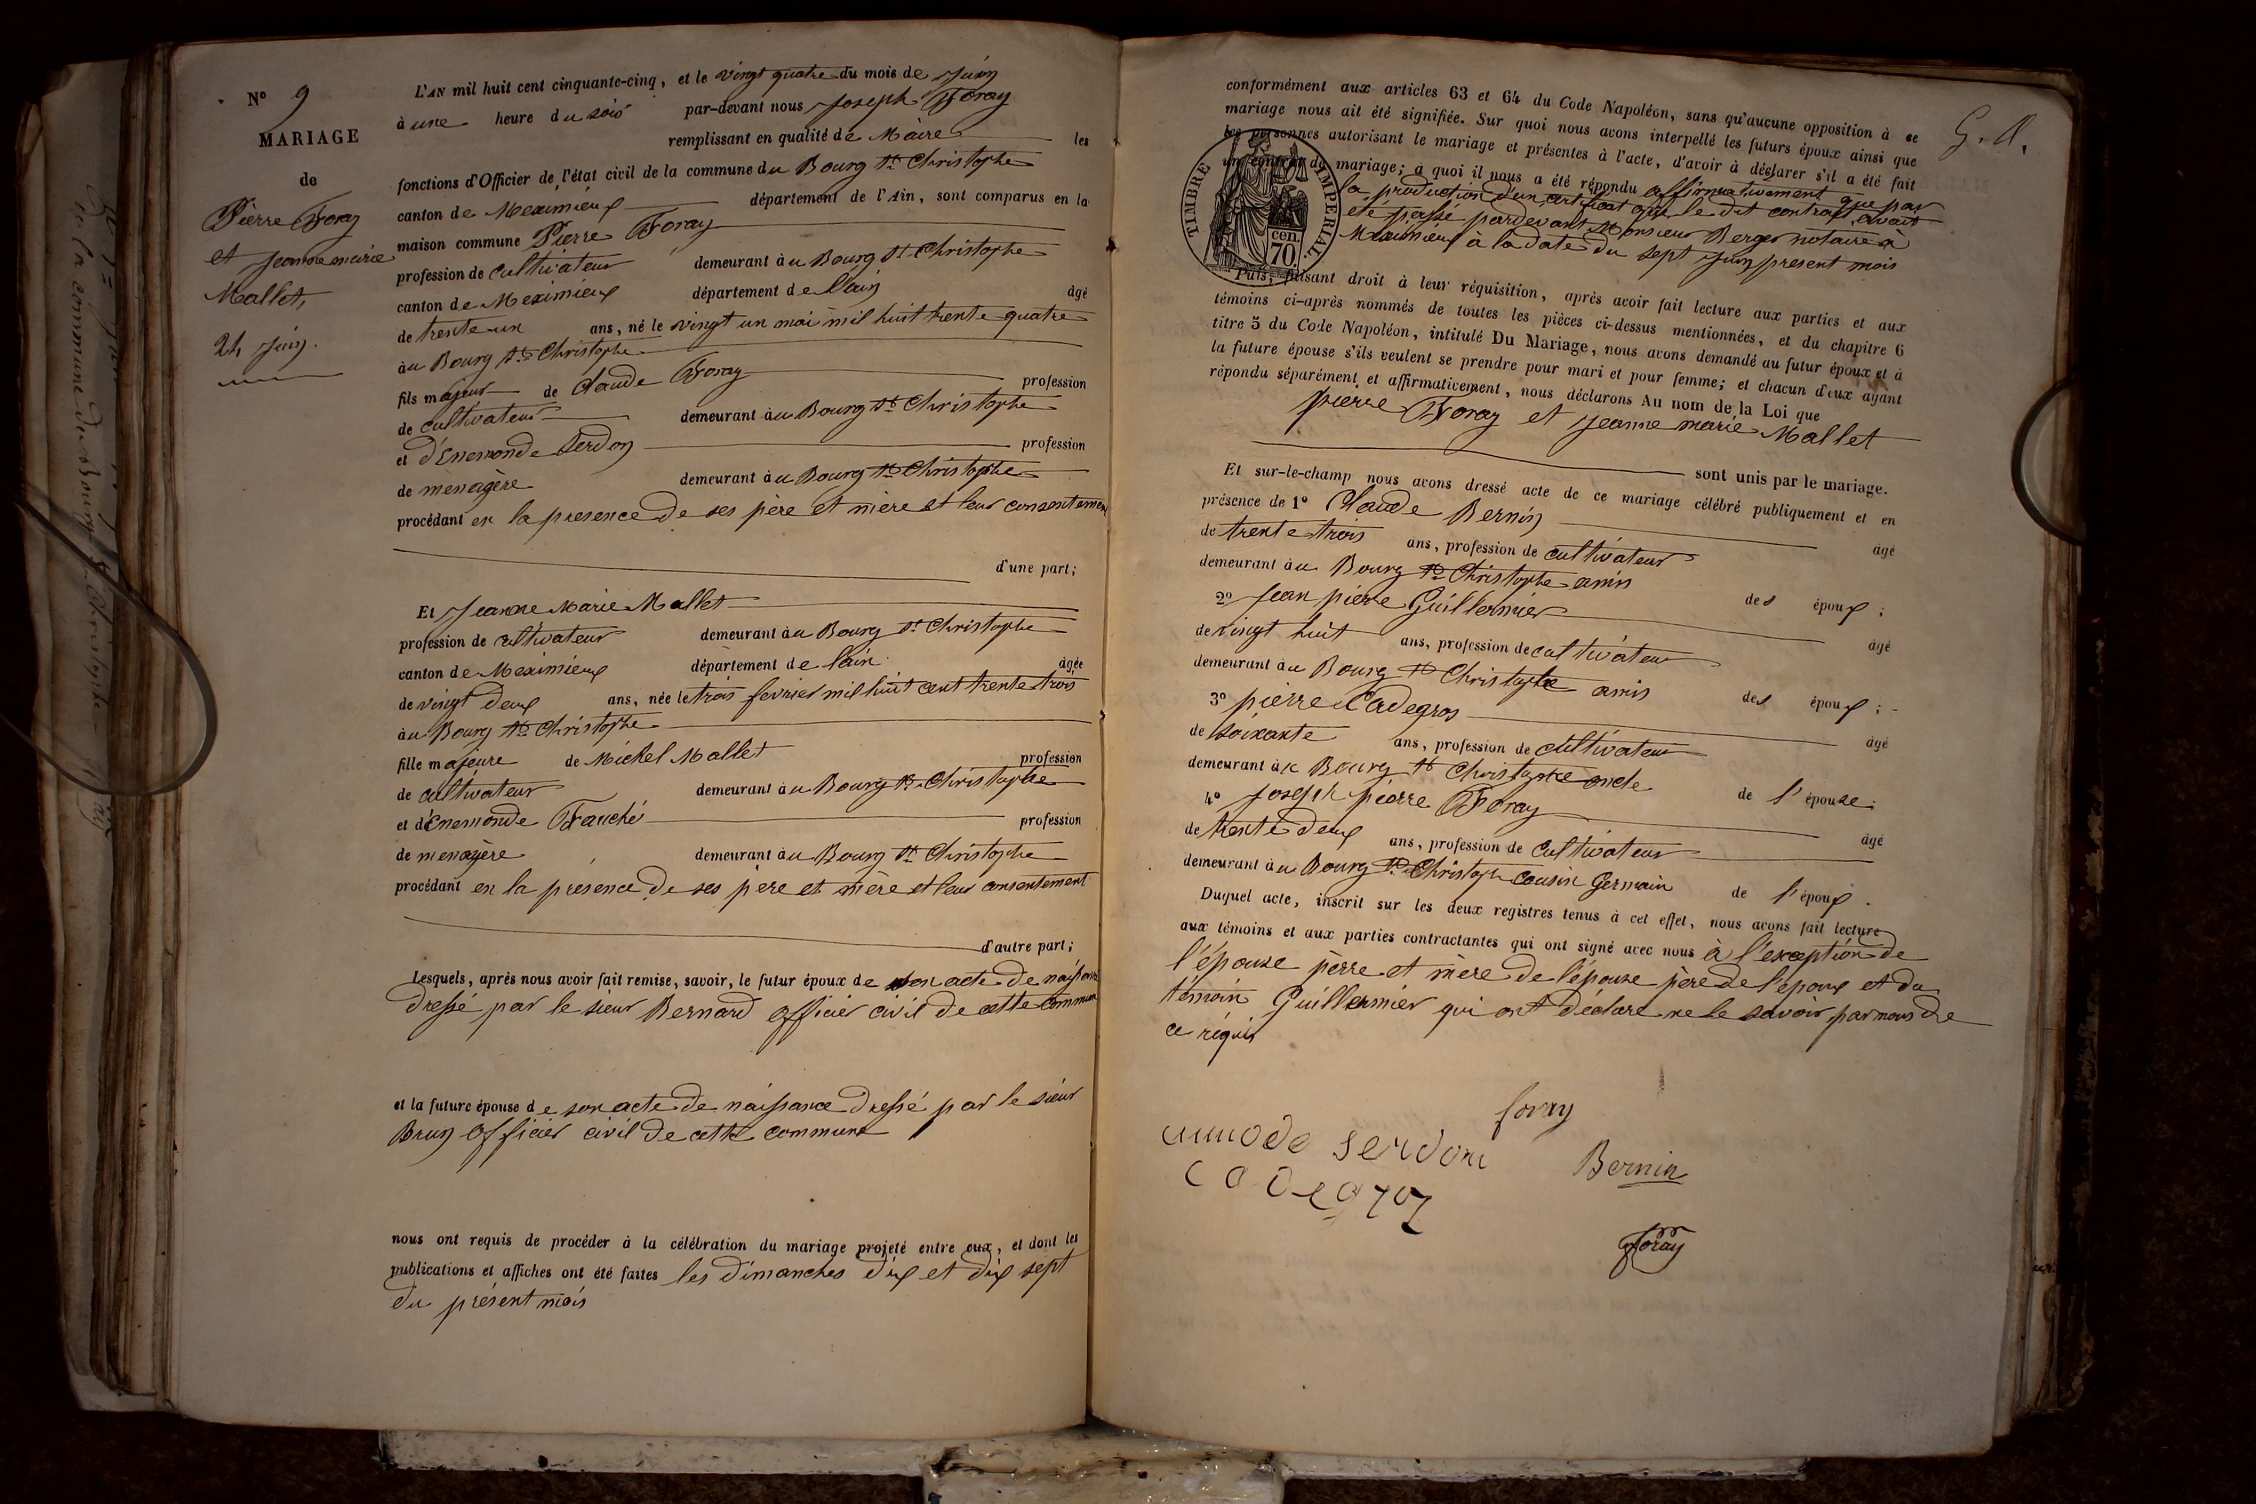 N° 9
MARIAGE
de
Pierre Foray
et Jeanne marie
Mallet,
24 Juin.
L'AN mil huit cent cinquante-cinq, et le vingt quatre du mois de Juin
à une heure du soir par-devant nous Joseph Foray
remplissant en qualité de Maire les
fonctions d'Officier de l'état civil de la commune du Bourg St Christophe
canton de Meximieux département de l'Ain, sont comparus en la
maison commune Pierre Foray
profession de cultivateur demeurant au Bourg St Christophe
canton de Meximieux département de l'ain âgé
de trente un ans, né le vingt un mai mil huit trente quatre
au Bourg St Christophe
fils majeur de Claude Foray profession
de cultivateur demeurant au Bourg St Christophe
et d'Enemonde Serdon profession
de menagère demeurant au Bourg St Christophe
procédant en la presence de ses père et mère et leur consentement
d'une part;
Et Jeanne Marie Mallet
profession de cultivateur demeurant au Bourg St Christophe
canton de Meximieux département de l'ain âgée
de vingt deux ans, née le trois fevrier mil huit cent trente trois
au Bourg St Christophe
fille majeure de Michel Mallet profession
de cultivateur demeurant au Bourg St Christophe
et d'Enemonde Fauché profession
de menagère demeurant au Bourg St Christophe
procédant en la présence de ses père et mère et leur consentement
d'autre part;
Lesquels, après nous avoir fait remise, savoir, le futur époux de son acte de naissance
dressé par le sieur Bernard officier civil de cette commune
et la future épouse de son acte de naissance dressé par le sieur
Brun officier civil de cette commune
nous ont requis de procéder à la célébration du mariage projeté entre eux, et dont les
publications et affiches ont été faites les dimanches dix et dix sept
du présent mois
G. A.
conformément aux articles 63 et 64 du Code Napoléon, sans qu'aucune opposition à ce
mariage nous ait été signifiée. Sur quoi nous avons interpellé les futurs époux ainsi que
les personnes autorisant le mariage et présentes à l'acte, d'avoir à déclarer s'il a été fait
un contrat de mariage; à quoi il nous a été répondu affirmativement que par
la production d'un certificat que le dit contrat avait
été passé pardevant Monsieur Berger notaire à
Meximieux à la date du sept Juin present mois
TIMBRE IMPERIAL
70 cen.
Puis, faisant droit à leur réquisition, après avoir fait lecture aux parties et aux
témoins ci-après nommés de toutes les pièces ci-dessus mentionnées, et du chapitre 6
titre 5 du Code Napoléon, intitulé Du Mariage, nous avons demandé au futur époux et à
la future épouse s'ils veulent se prendre pour mari et pour femme; et chacun d'eux ayant
répondu séparément et affirmativement, nous déclarons Au nom de la Loi que
pierre Foray et Jeanne marie Mallet
sont unis par le mariage.
Et sur-le-champ nous avons dressé acte de ce mariage célébré publiquement et en
présence de 1° Claude Bernin âgé
de trente trois ans, profession de cultivateur
demeurant au Bourg St Christophe amis des époux;
2° Jean pierre Guillermier âgé
de vingt huit ans, profession de cultivateur
demeurant au Bourg St Christophe amis des époux;
3° pierre Cadegros âgé
de soixante ans, profession de cultivateur
demeurant au Bourg St Christophe oncle de l'épouse;
4° Joseph pierre Foray âgé
de trente deux ans, profession de cultivateur
demeurant au Bourg St Christophe cousin Germain de l'époux.
Duquel acte, inscrit sur les deux registres tenus à cet effet, nous avons fait lecture
aux témoins et aux parties contractantes qui ont signé avec nous à l'exception de
l'épouse pèrre et mère de l'épouse père de l'époux et du
témoin Guillermier qui ont déclaré ne le savoir, par nous de
ce réquis
foray
serdon Bernin
Cadegros
Foray